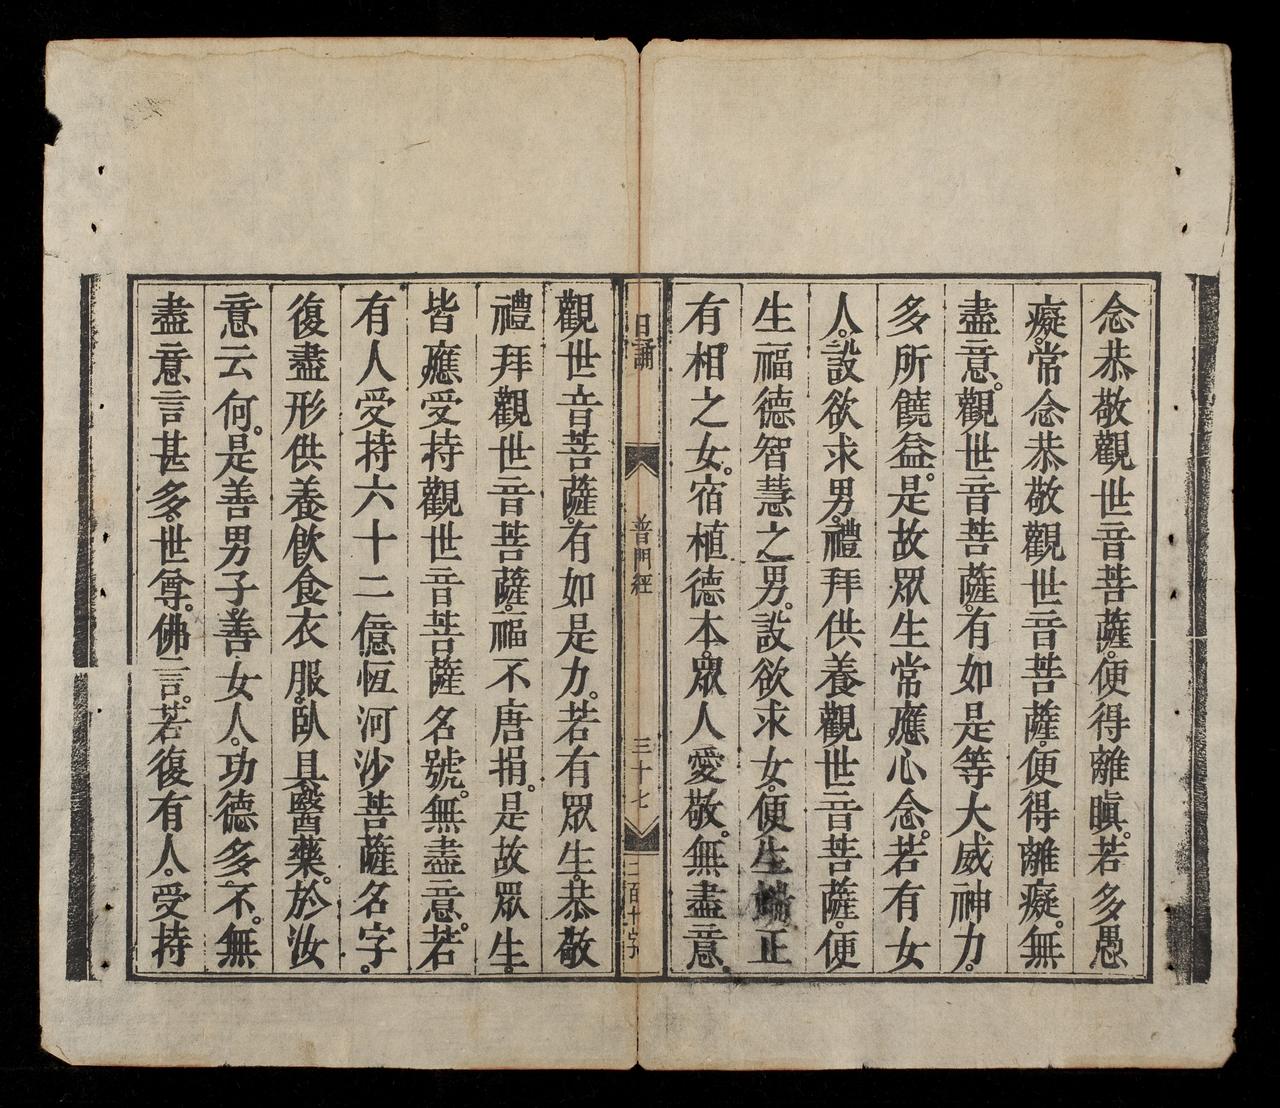 念恭敬觀世音菩薩。便得離瞋。若多愚
癡。常念恭敬觀世音菩薩。便得離癡。無
盡意。觀世音菩薩。有如是等大威神力。
多所饒益。是故眾生常應心念。若有女
人。設欲求男。禮拜供養觀世音菩薩。便
生福德智慧之男。設欲求女。便生端正
有相之女。宿植德本。眾人愛敬。無盡意。
日誦 普門經 三十七 二百十字
觀世音菩薩。有如是力。若有眾生。恭敬
禮拜觀世音菩薩。福不唐捐。是故眾生。
皆應受持觀世音菩薩名號。無盡意。若
有人受持六十二億恆河沙菩薩名字。
復盡形供養飲食衣服。臥具醫藥。於汝
意云何。是善男子。善女人。功德多不。無
盡意言甚多。世尊。佛言。若復有人。受持